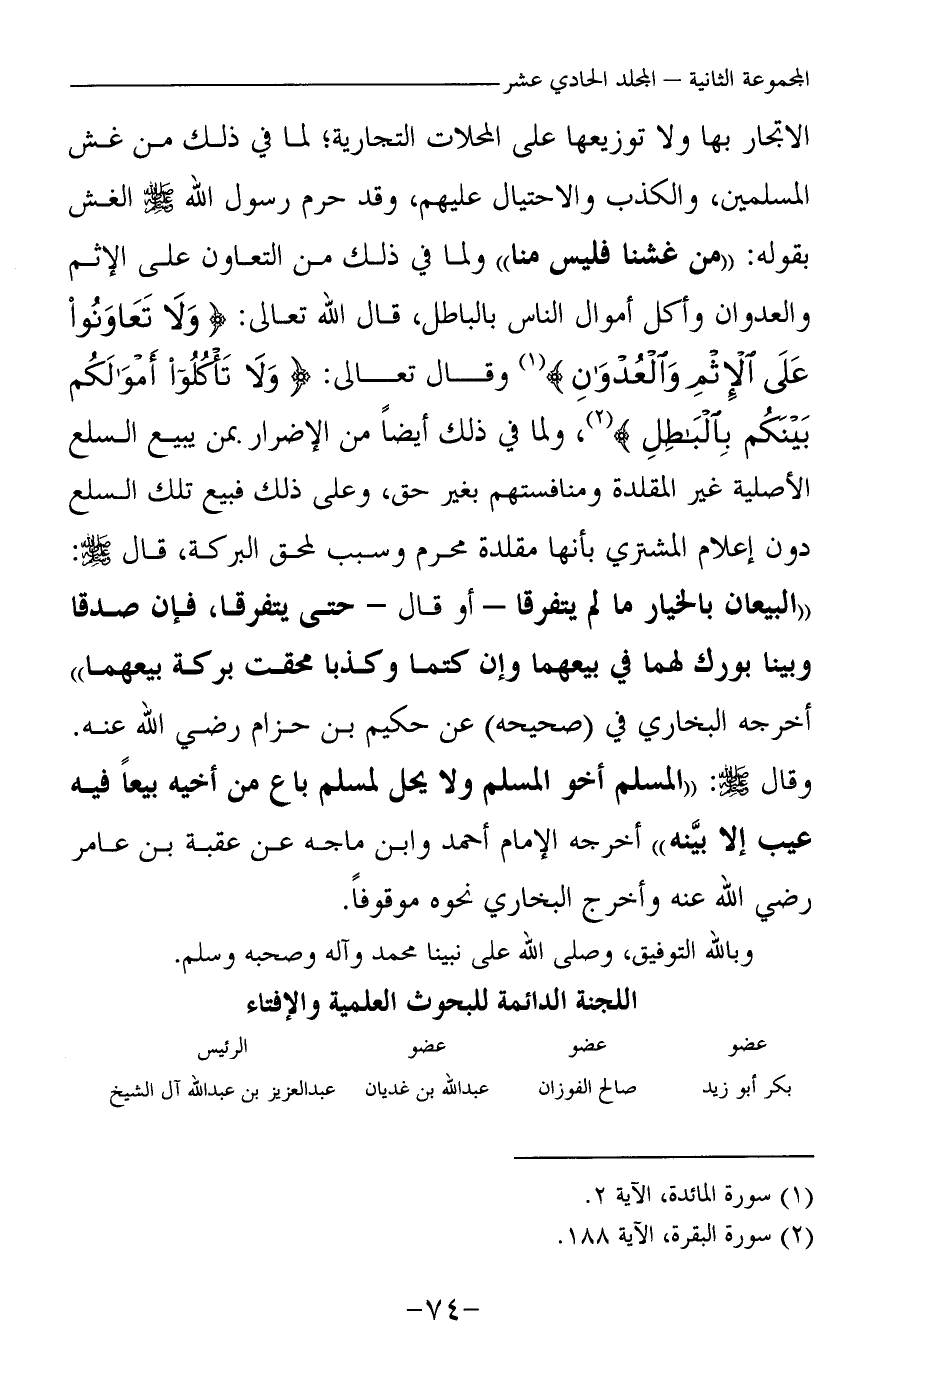 المجموعة الثانية – المجلد الحادي عشر
الاتجار بها ولا توزيعها على المحلات التجارية؛ لما في ذلك من غش
المسلمين، والكذب والاحتيال عليهم، وقد حرم رسول الله ﷺ الغش
بقوله: ((من غشنا فليس منا)) ولما في ذلك من التعاون على الإثم
والعدوان وأكل أموال الناس بالباطل، قال الله تعالى: ﴿ وَلَا تَعَاوَنُوا۟
عَلَى ٱلْإِثْمِ وَٱلْعُدْوَٰنِ ﴾(١) وقال تعالى: ﴿ وَلَا تَأْكُلُوٓا۟ أَمْوَٰلَكُم
بَيْنَكُم بِٱلْبَٰطِلِ ﴾(٢)، ولما في ذلك أيضاً من الإضرار بمن يبيع السلع
الأصلية غير المقلدة ومنافستهم بغير حق، وعلى ذلك فبيع تلك السلع
دون إعلام المشتري بأنها مقلدة محرم وسبب لمحق البركة، قال ﷺ:
((البيعان بالخيار ما لم يتفرقا – أو قال – حتى يتفرقا، فإن صدقا
وبينا بورك لهما في بيعهما وإن كتما وكذبا محقت بركة بيعهما))
أخرجه البخاري في (صحيحه) عن حكيم بن حزام رضي الله عنه.
وقال ﷺ: ((المسلم أخو المسلم ولا يحل لمسلم باع من أخيه بيعاً فيه
عيب إلا بيَّنه)) أخرجه الإمام أحمد وابن ماجه عن عقبة بن عامر
رضي الله عنه وأخرج البخاري نحوه موقوفاً.
وبالله التوفيق، وصلى الله على نبينا محمد وآله وصحبه وسلم.
اللجنة الدائمة للبحوث العلمية والإفتاء
عضو عضو عضو الرئيس
بكر أبو زيد صالح الفوزان عبدالله بن غديان عبدالعزيز بن عبدالله آل الشيخ
(١) سورة المائدة، الآية ٢.
(٢) سورة البقرة، الآية ١٨٨.
-٧٤-